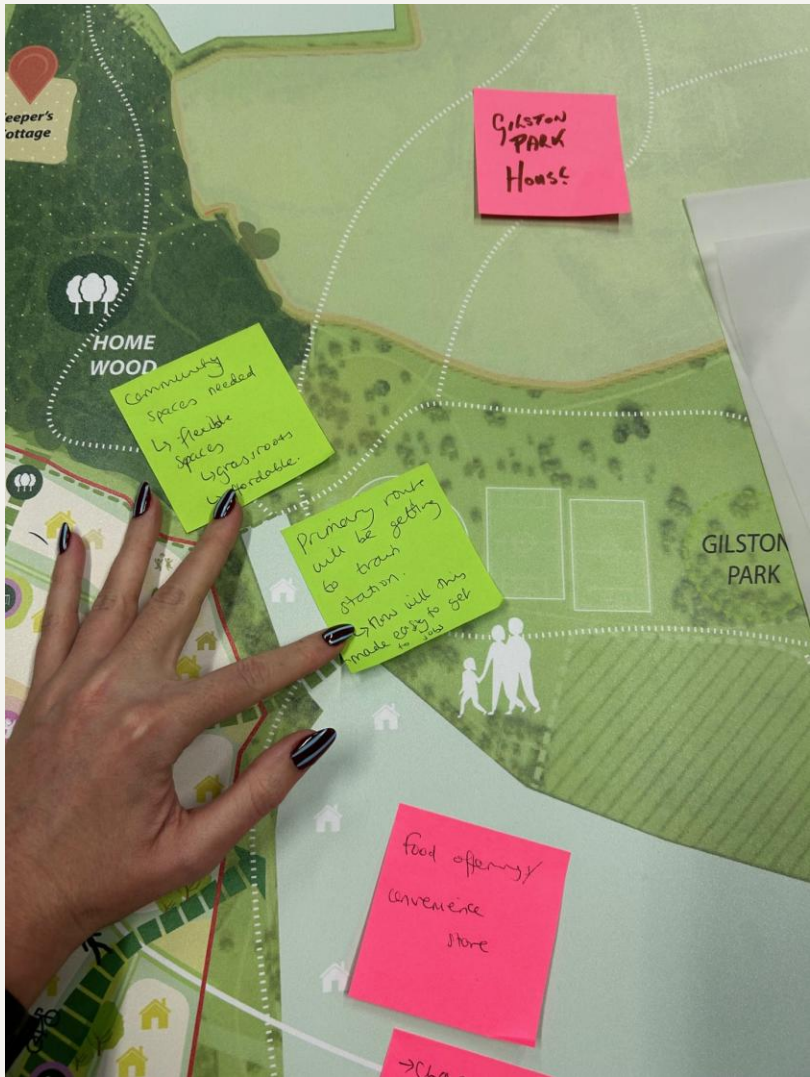 Keeper's
Cottage
GILSTON
PARK
HOUSE
HOME
WOOD
Community
spaces needed
↳ flexible
spaces
↳ grassroots
↳ affordable.
Primary route
will be getting
to train
station.
↳ How will this
made easy to get
to jobs
GILSTON
PARK
Food offerings/
convenience
store